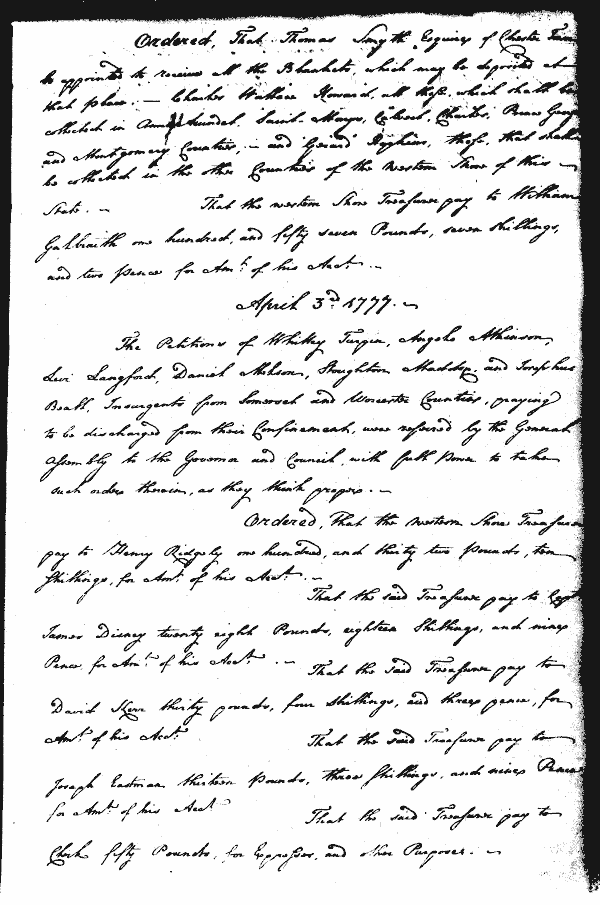 Ordered, That Thomas Smyth Esquire of Chester Town
be appointed to receive all the Blankets, which may be deposited at
that place. — Charles Wallace Howard, all those, which shall be
collected in Ann Arundel, Saint Marys, Calvert, Charles, Prince George
and Montgomery Counties, — and Gerard Hopkins, those, that shall
be collected in the other Counties of the western Shore of this —
State. — That the western Shore Treasurer pay to William
Galbraith one hundred, and fifty seven Pounds, seven shillings,
and two pence for Amt. of his Acct. —
April 3d 1777. —
The Petitions of Whitley Turpin, Angelo Atkinson,
Levi Langford, Daniel Stoughton Maddox, and Josephus
Beall, Insurgents from Somerset and Worcester Counties, praying
to be discharged from their Confinement, were referred by the General
Assembly to the Governor and Council, with full Power to take
such order therein, as they think proper. —
Ordered, That the western Shore Treasurer
pay to Henry Ridgely one hundred, and thirty two Pounds, ten
Shillings, for Amt. of his Acct. —
That the said Treasurer pay to Capt
James Disney twenty eight Pounds, eighteen Shillings, and nine
Pence, for Amt. of his Acct. —
That the said Treasurer pay to
David Kerr thirty pounds, four Shillings, and three pence, for
Amt. of his Acct.
That the said Treasurer pay to
Joseph Eastman thirteen Pounds, three Shillings, and nine Pence
for Amt. of his Acct
That the said Treasurer pay to
Clerk fifty Pounds, for Expresses, and other Purposes. —